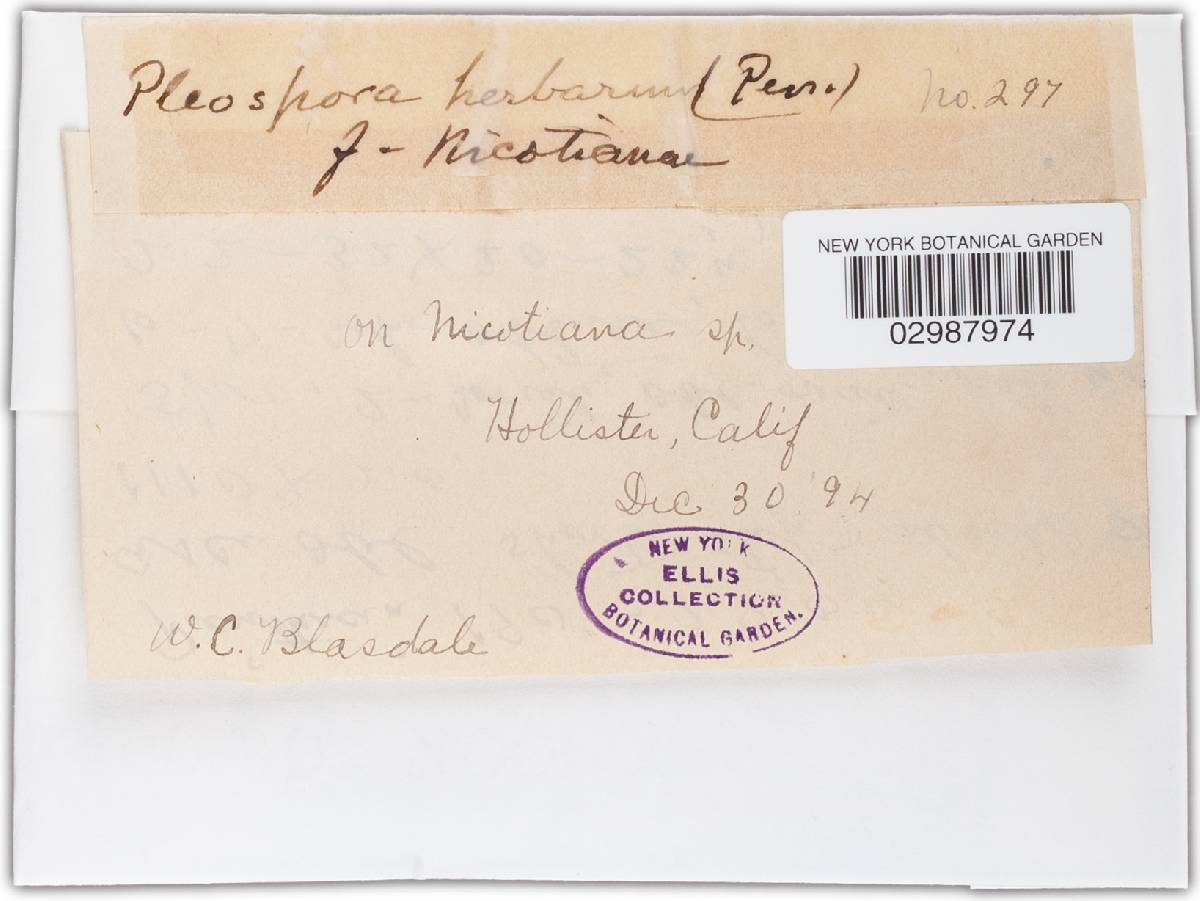 Pleospora herbarum (Pers.) No. 297
f - Nicotianae
NEW YORK BOTANICAL GARDEN
02987974
on Nicotiana sp.
Hollister, Calif
Dec 30 '94
NEW YORK
ELLIS
COLLECTION
BOTANICAL GARDEN.
W. C. Blasdale